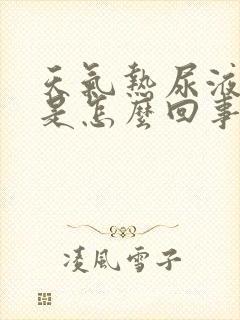 天氣熱尿液
是怎麼回事
凌風雪子